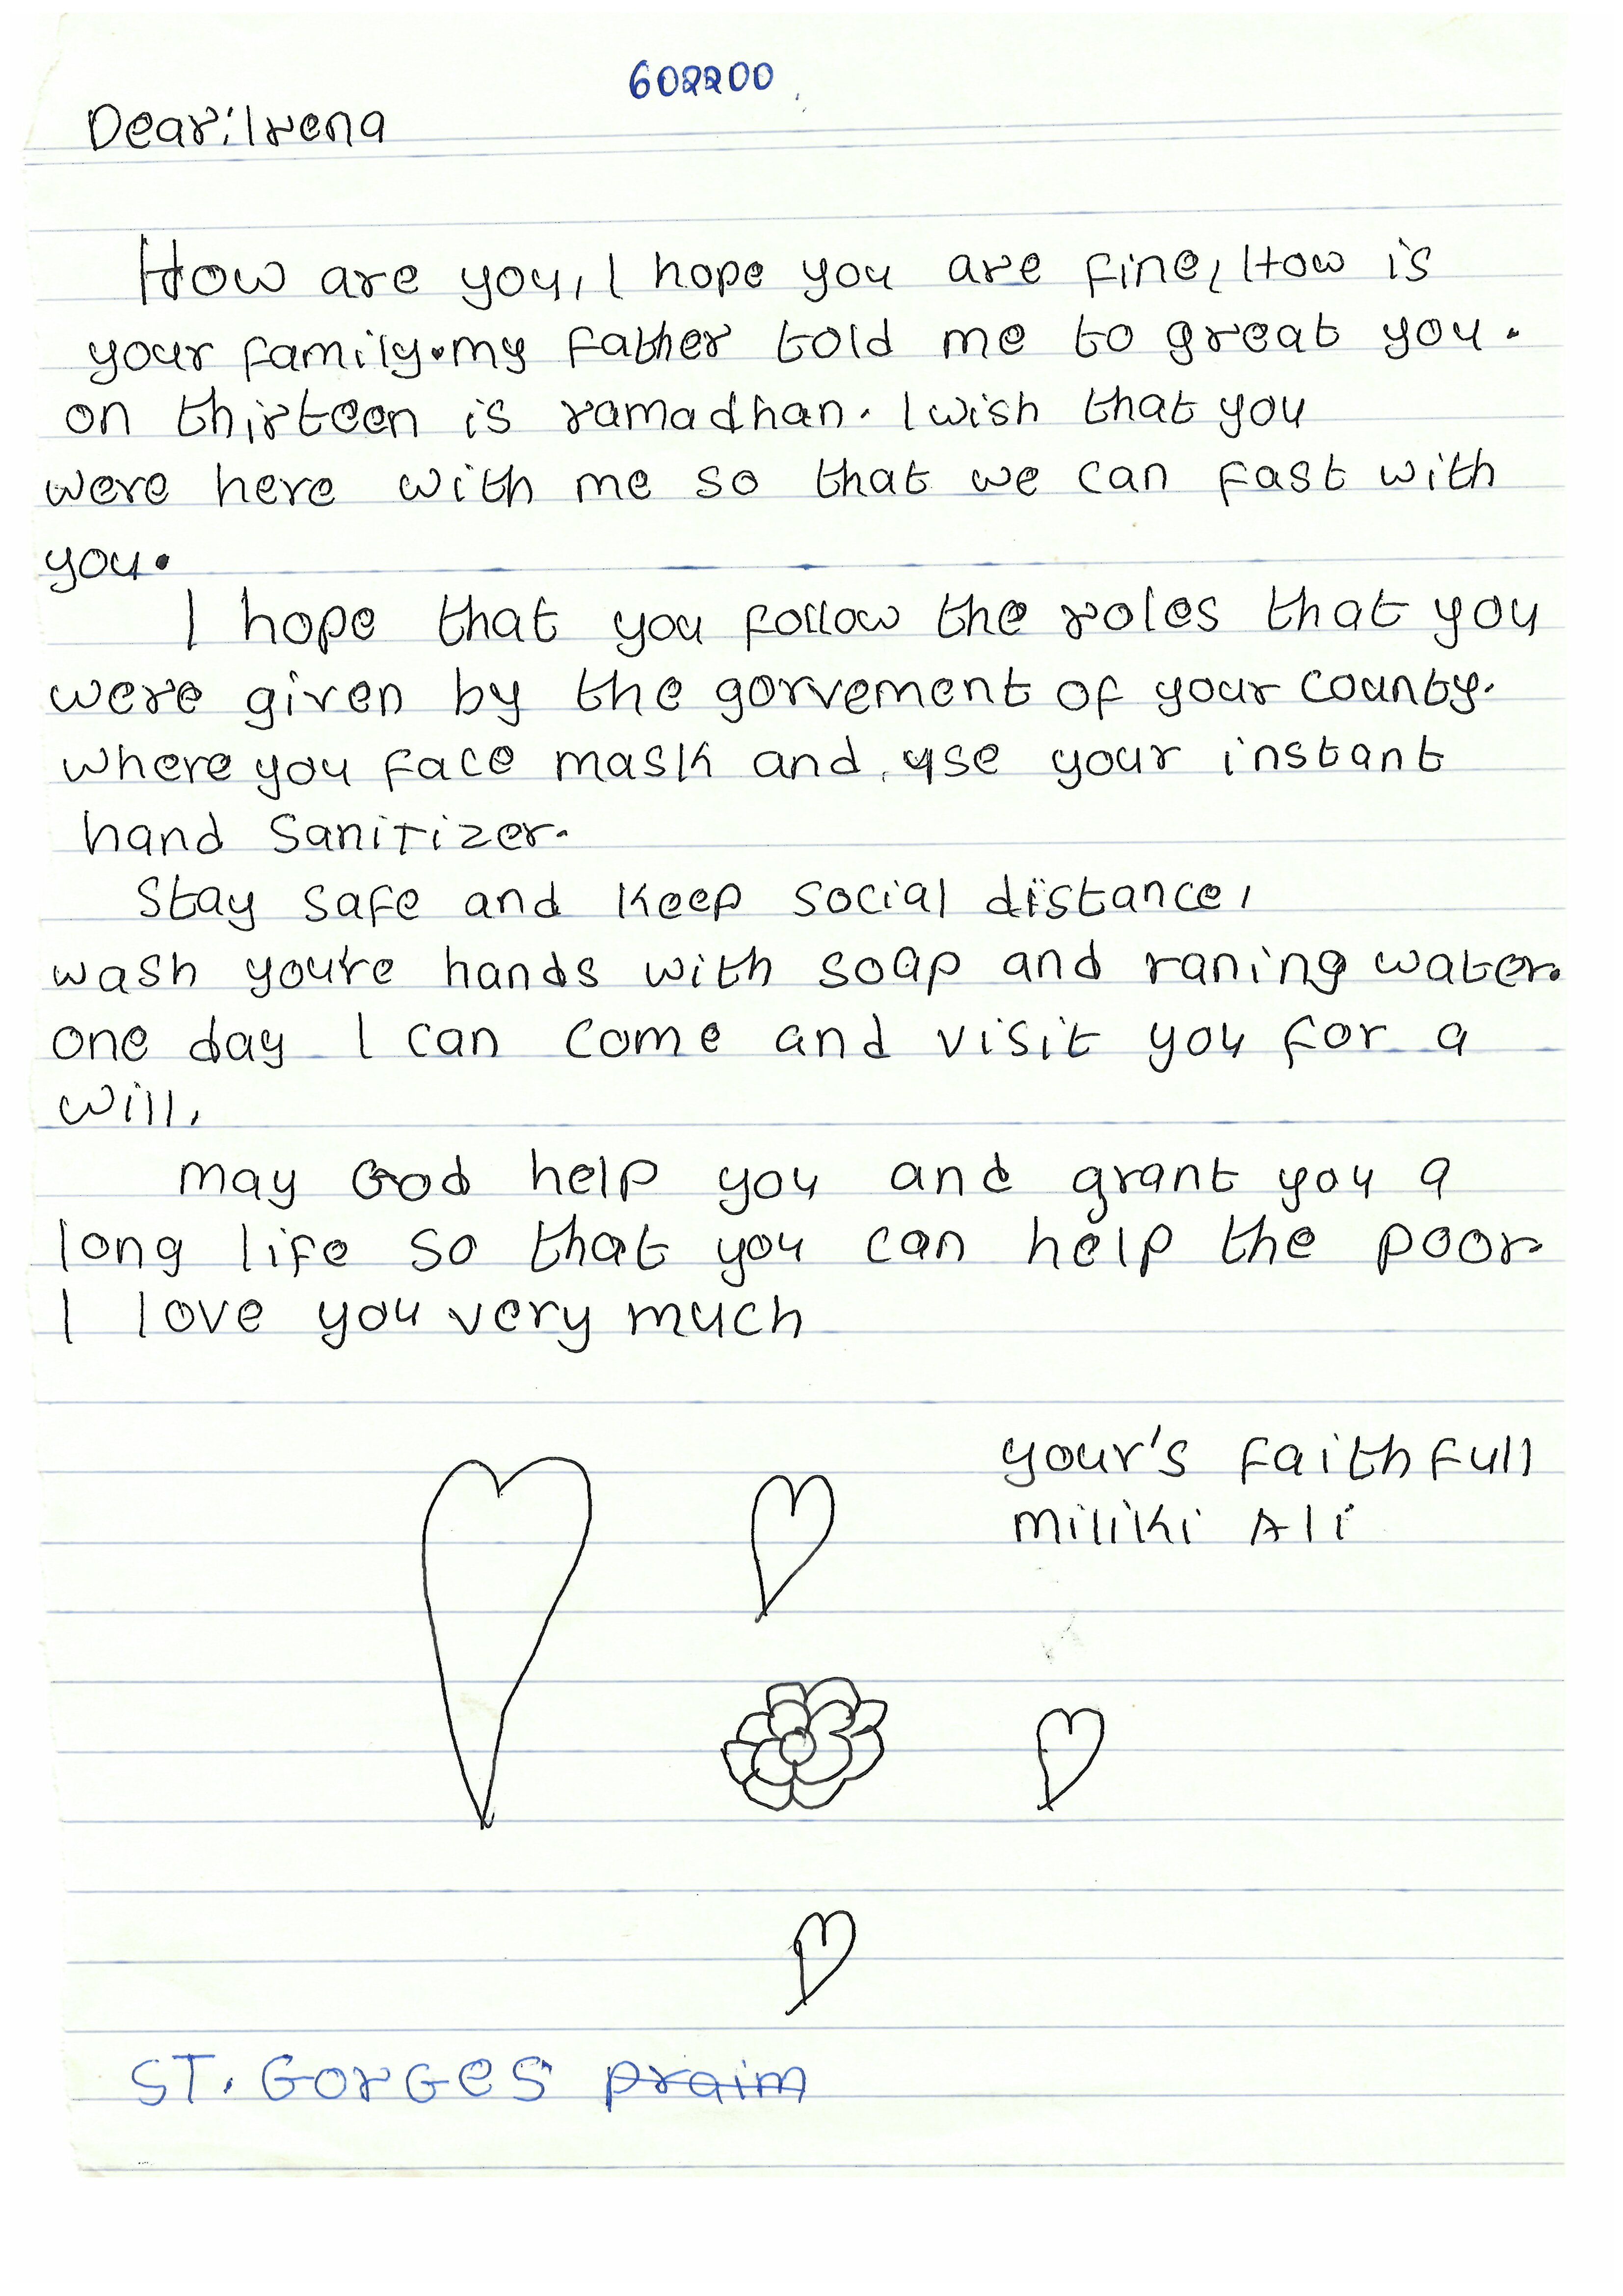 602200
Dear: Irena
How are you, I hope you are fine, How is
your family. my father told me to great you.
on thirteen is ramadhan. I wish that you
were here with me so that we can fast with
you.
I hope that you follow the roles that you
were given by the gorvement of your county.
where you face mask and use your instant
hand Sanitizer.
Stay safe and keep social distance,
wash you're hands with soap and raning water.
one day I can come and visit you for a
will.
may God help you and grant you a
long life so that you can help the poor.
I love you very much
your's faithfull
miliki Ali
ST. GorGes praim